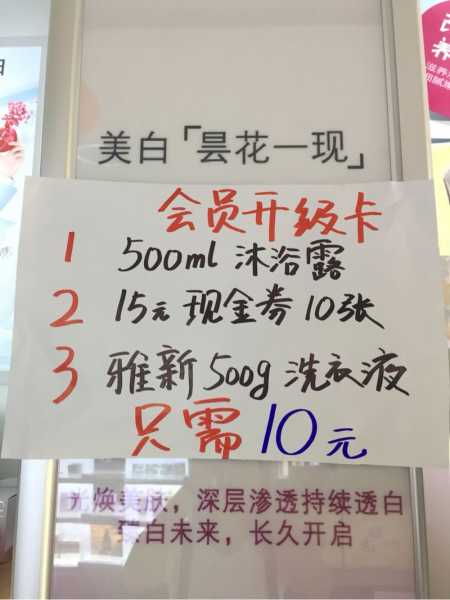 美白「昙花一现」
会员开级卡
1 500ml 沐浴露
2 15元现金券10张
3 雅新500g洗衣液
只需10元
光焕美肤，深层渗透持续透白
臻白未来，长久开启
滋养
细腻